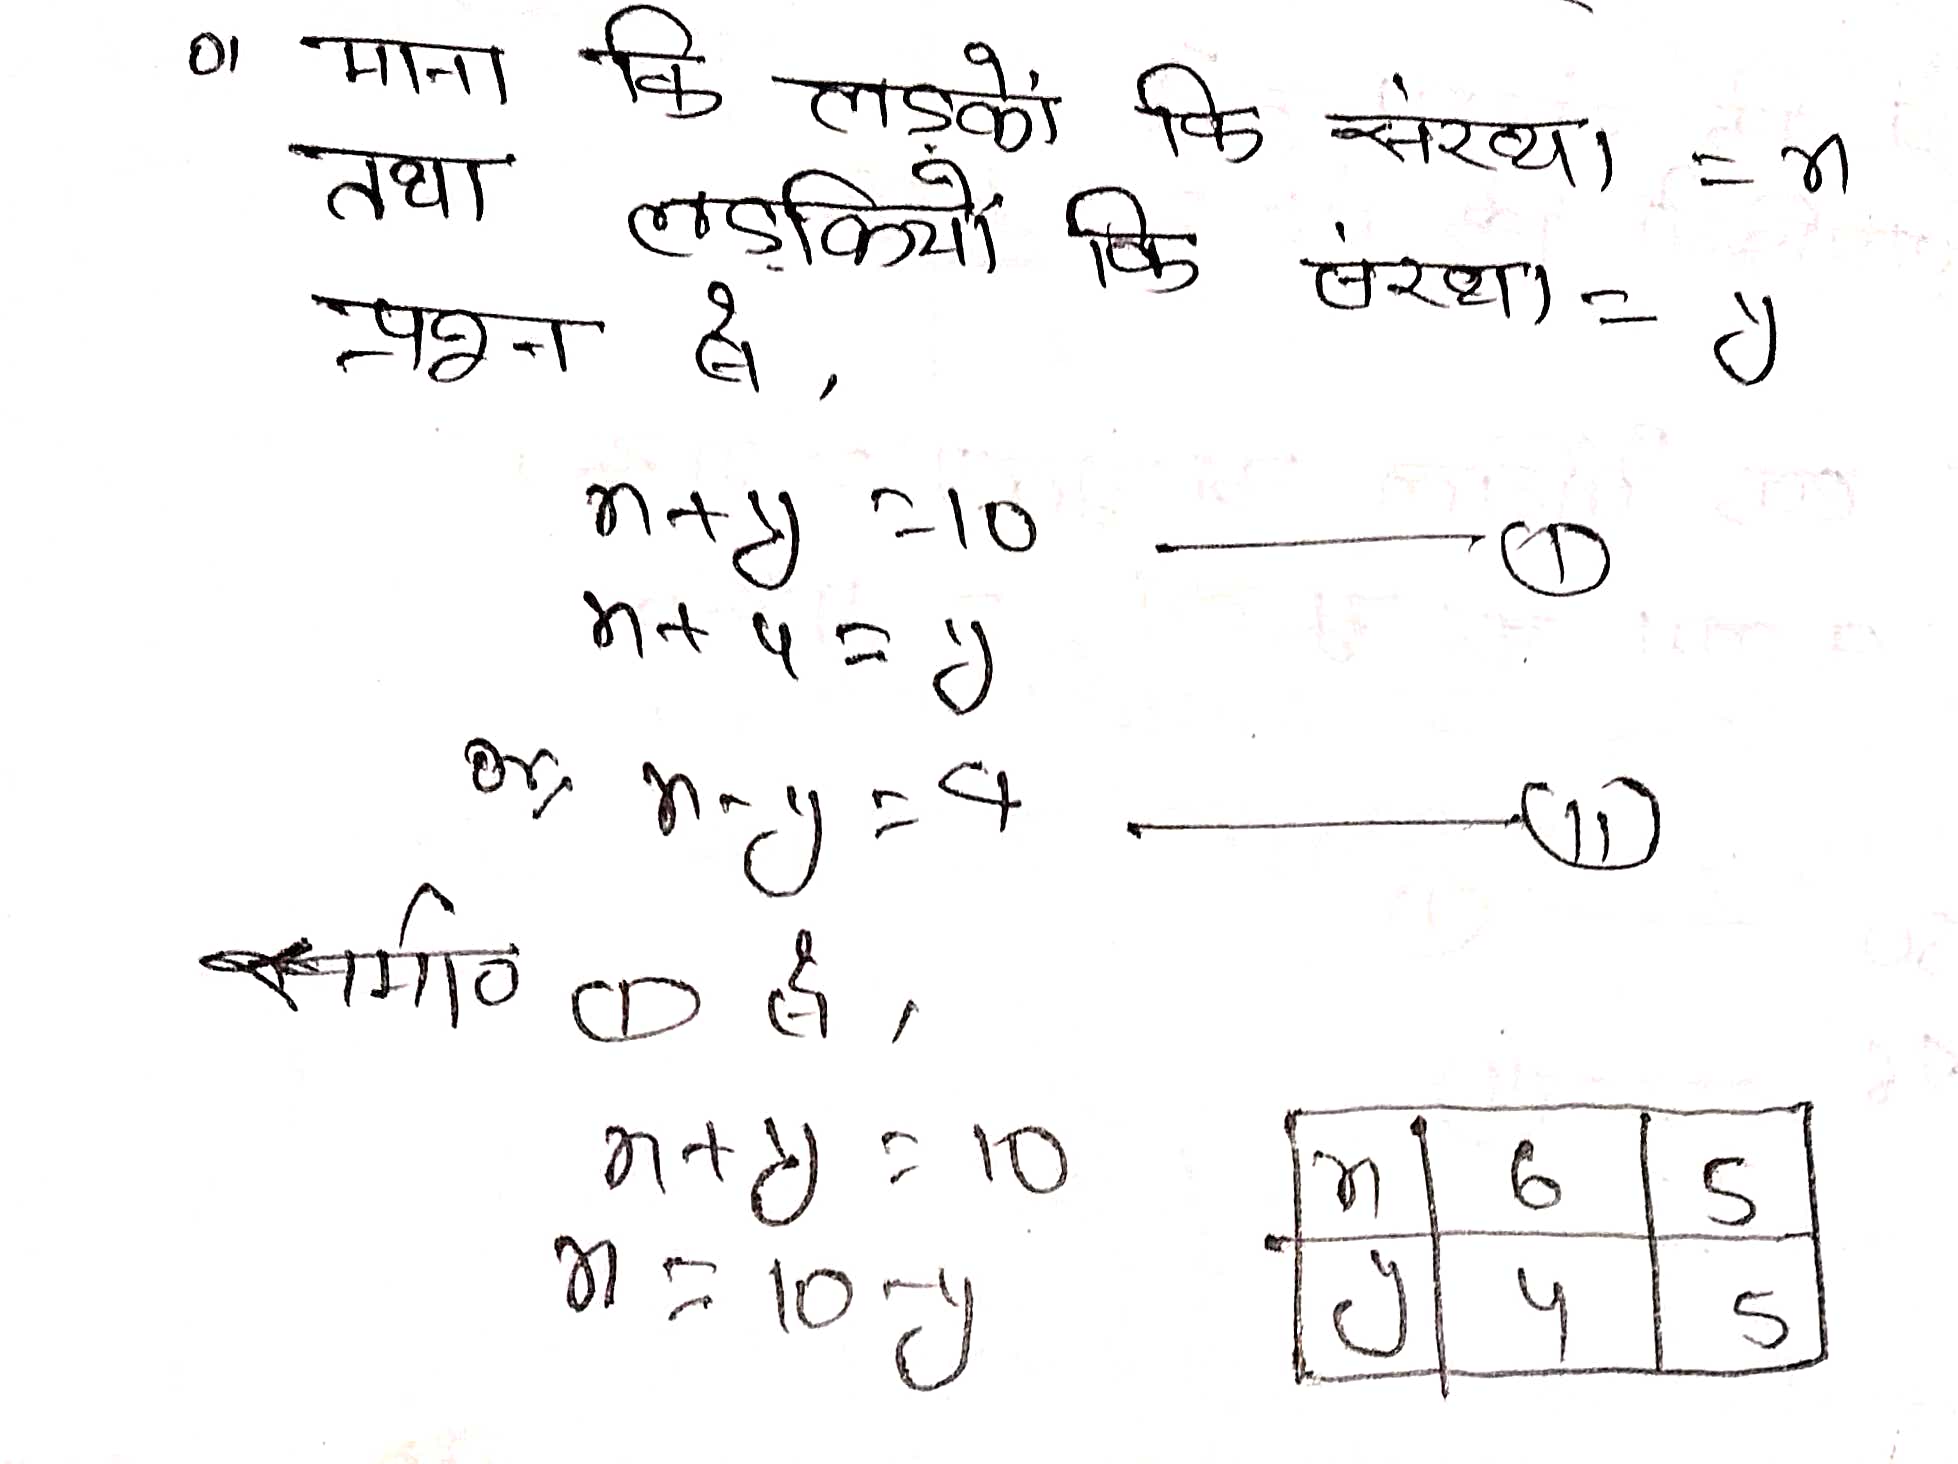 01 माना कि लड़कों कि संख्या = x
तथा लड़कियों कि संख्या = y
प्रश्न से,
x + y = 10 ——— (I)
x + 4 = y
or, x - y = 4 ——— (II)
समी० (I) से,
x + y = 10
x = 10 - y
x 6 5
y 4 5